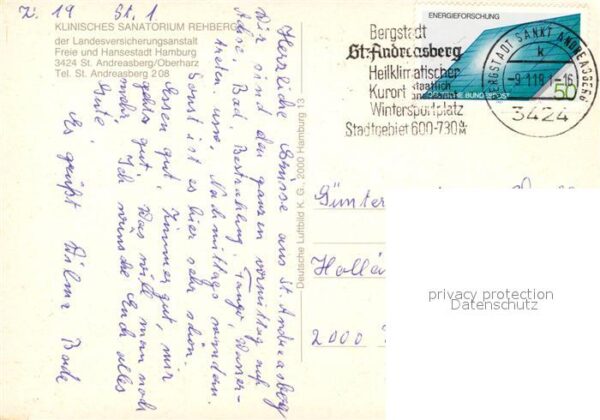 Z. 19 St. 1
KLINISCHES SANATORIUM REHBERG
der Landesversicherungsanstalt
Freie und Hansestadt Hamburg
3424 St. Andreasberg/Oberharz
Tel. St. Andreasberg 208
Herzliche Grüsse aus St. Andreasberg
Wir sind den ganzen vormittag auf
Achse, Bad, Bestrahlung, Tango, Wasser-
treten usw. Nachmittags wandern.
Sonst ist es hier sehr schön.
Essen gut, Zimmer gut, mir
geht es gut, Was will man noch
mehr. Ich wünsche Euch alles
Gute
Es grüßt Wilma Bode
Deutsche Luftbild K. G., 2000 Hamburg 13
Bergstadt
St. Andreasberg
Heilklimatischer
Kurort staatlich
Wintersportplatz
Stadtgebiet 600-730 m
ENERGIEFORSCHUNG
DEUTSCHE BUNDESPOST
50
BERGSTADT SANKT ANDREASBERG
k
-9.1.181-16
3424
Günter
Hollä
2000
privacy protection
Datenschutz